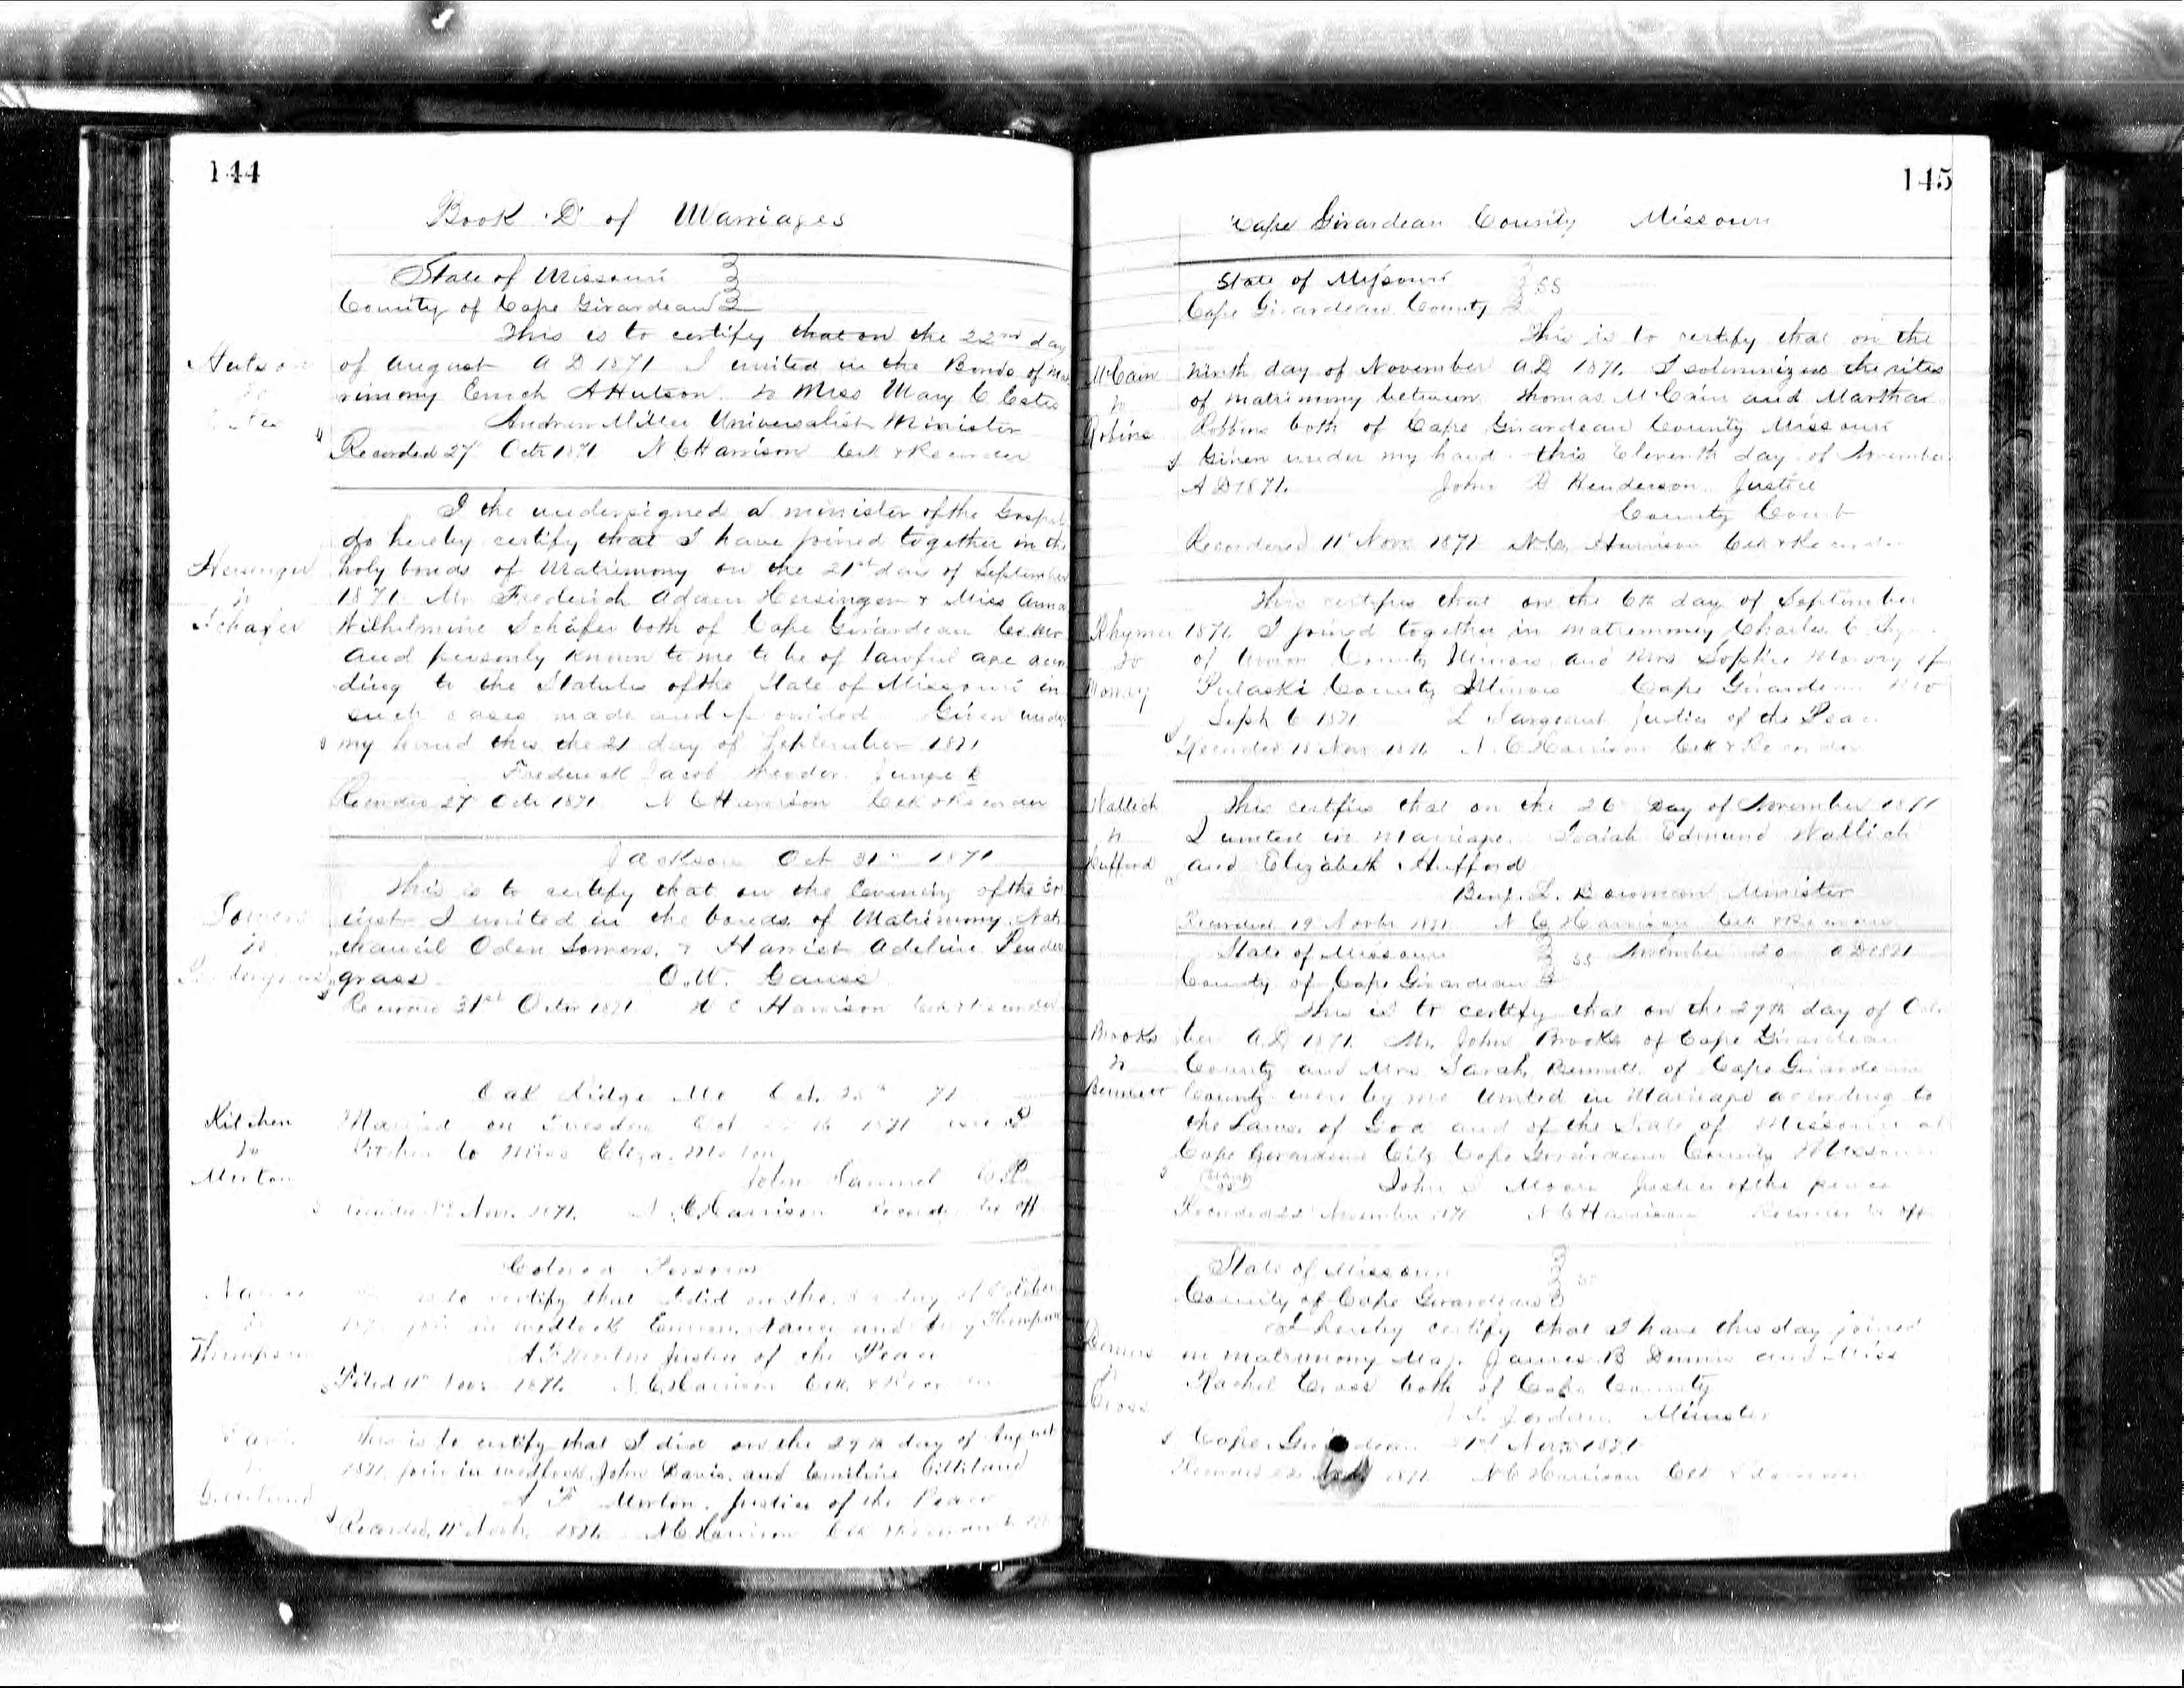 144
Book "D" of Marriages
State of Missouri
County of Cape Girardeau
This is to certify that on the 22nd day
Hutson
of August A D 1871 I united in the Bonds of Mat
to
rimony Enoch A Hutson to Miss Mary C Estes
Estes
Andrew Miller Universalist Minister
Recorded 27 Oct 1871 N C Harrison Clk & Recorder
I the undersigned a minister of the Gospel
do hereby certify that I have joined together in the
Hersinger
holy bonds of Matrimony on the 21st day of September
to
1871 Mr Frederich Adam Hersinger & Miss Anna
Schafer
Wilhelmine Schäfer both of Cape Girardeau Co. Mo.
and personly known to me to be of lawful age accor
ding to the Statutes of the State of Missouri in
such cases made and provided Given under
my hand this the 21 day of September 1871
Frederick Jacob Theodor
Recorded 27 Oct 1871 N C Harrison Clk & Recorder
Jackson Oct 31st 1871
This is to certify that on the Evening of the
Somers
inst I united in the bonds of Matrimony Nat
to
thaniel Oden Somers, & Harriet Adeline Pender
Pendergrass
grass O. W. Gauss
Recorded 31st Octor 1871 N C Harrison Clk & Recorder
Oak Ridge Mo Oct. 71
Kitchen
Married on Tuesday Oct 1871
to
Kitchen to Miss Eliza Morton
Morton
John Sammel
Nov. 1871. N. C. Harrison Recorder Ex off
Colored Persons
Nance
is to certify that I did on the day of October
to
join in wedlock Nance and Thompson
Thompson
Justice of the Peace
Filed 11th Nov. 1871. N. C. Harrison Clk. & Recorder
Davis
This is to certify that I did on the 29th day of August
to
1871, join in wedlock John Davis, and Emiline Gilliland
Gilliland
A F Morton, Justice of the Peace
Recorded, 11th Nov. 1871. N C Harrison Clk
145
Cape Girardeau County Missouri
State of Missouri
SS
Cape Girardeau County
This is to certify that on the
McCain
ninth day of November A.D 1871. I solemnized the rites
to
of matrimony between Thomas McCain and Martha
Robins
Robbins both of Cape Girardeau County Missouri
Given under my hand this Eleventh day of November
A D 1871. John D Henderson Justice
County Court
Recordered 11th Nov. 1871 N. C. Harrison Clk & Recorder
This certifies that on the 6th day of September
Rhymer
1871. I joined together in matrimmony Charles C
to
of Union County Illinois and Mrs Sophie Mowry of
Mowry
Pulaski County Illinois Cape Girardeau Mo
Sept 6 1871 L Sargeant Justice of the Peace
Recorded 18 Nov. 1871. N. C Harrison Clk & Recorder
Wallich
This certifies that on the 26 Day of November 1871
to
I united in Marriage Isaiah Edmund Wallich
Hufford
and Elizabeth Hufford
Benj. L. Bowman Minister
Recorded 19 Novbr 1871. N C Harrison Clk & Recorder
State of Missouri
SS November 20 AD 1871
County of Cape Girardeau
This is to certify that on the 29th day of Octo
Brooks
ber A.D 1871. Mr. John Brooks of Cape Girardeau
to
County and Mrs Sarah Bennett of Cape Girardeau
Bennett
County were by me United in Marriage according to
the Laws of God and of the State of Missouri at
Cape Girardeau City Cape Girardeau County Missouri
John S Moore Justice of the peace
Recorded November 1871 N C Harrison Recorder Ex off
State of Missouri
SS
County of Cape Girardeau
I hereby certify that I have this day joined
Dennis
in matrimony Maj. James B Dennis and Miss
to
Rachel Cross both of Cape County
Cross
Jordan Minister
Cape Girardeau 1st Nov. 1871
Recorded 1871 N C Harrison Clk & Recorder